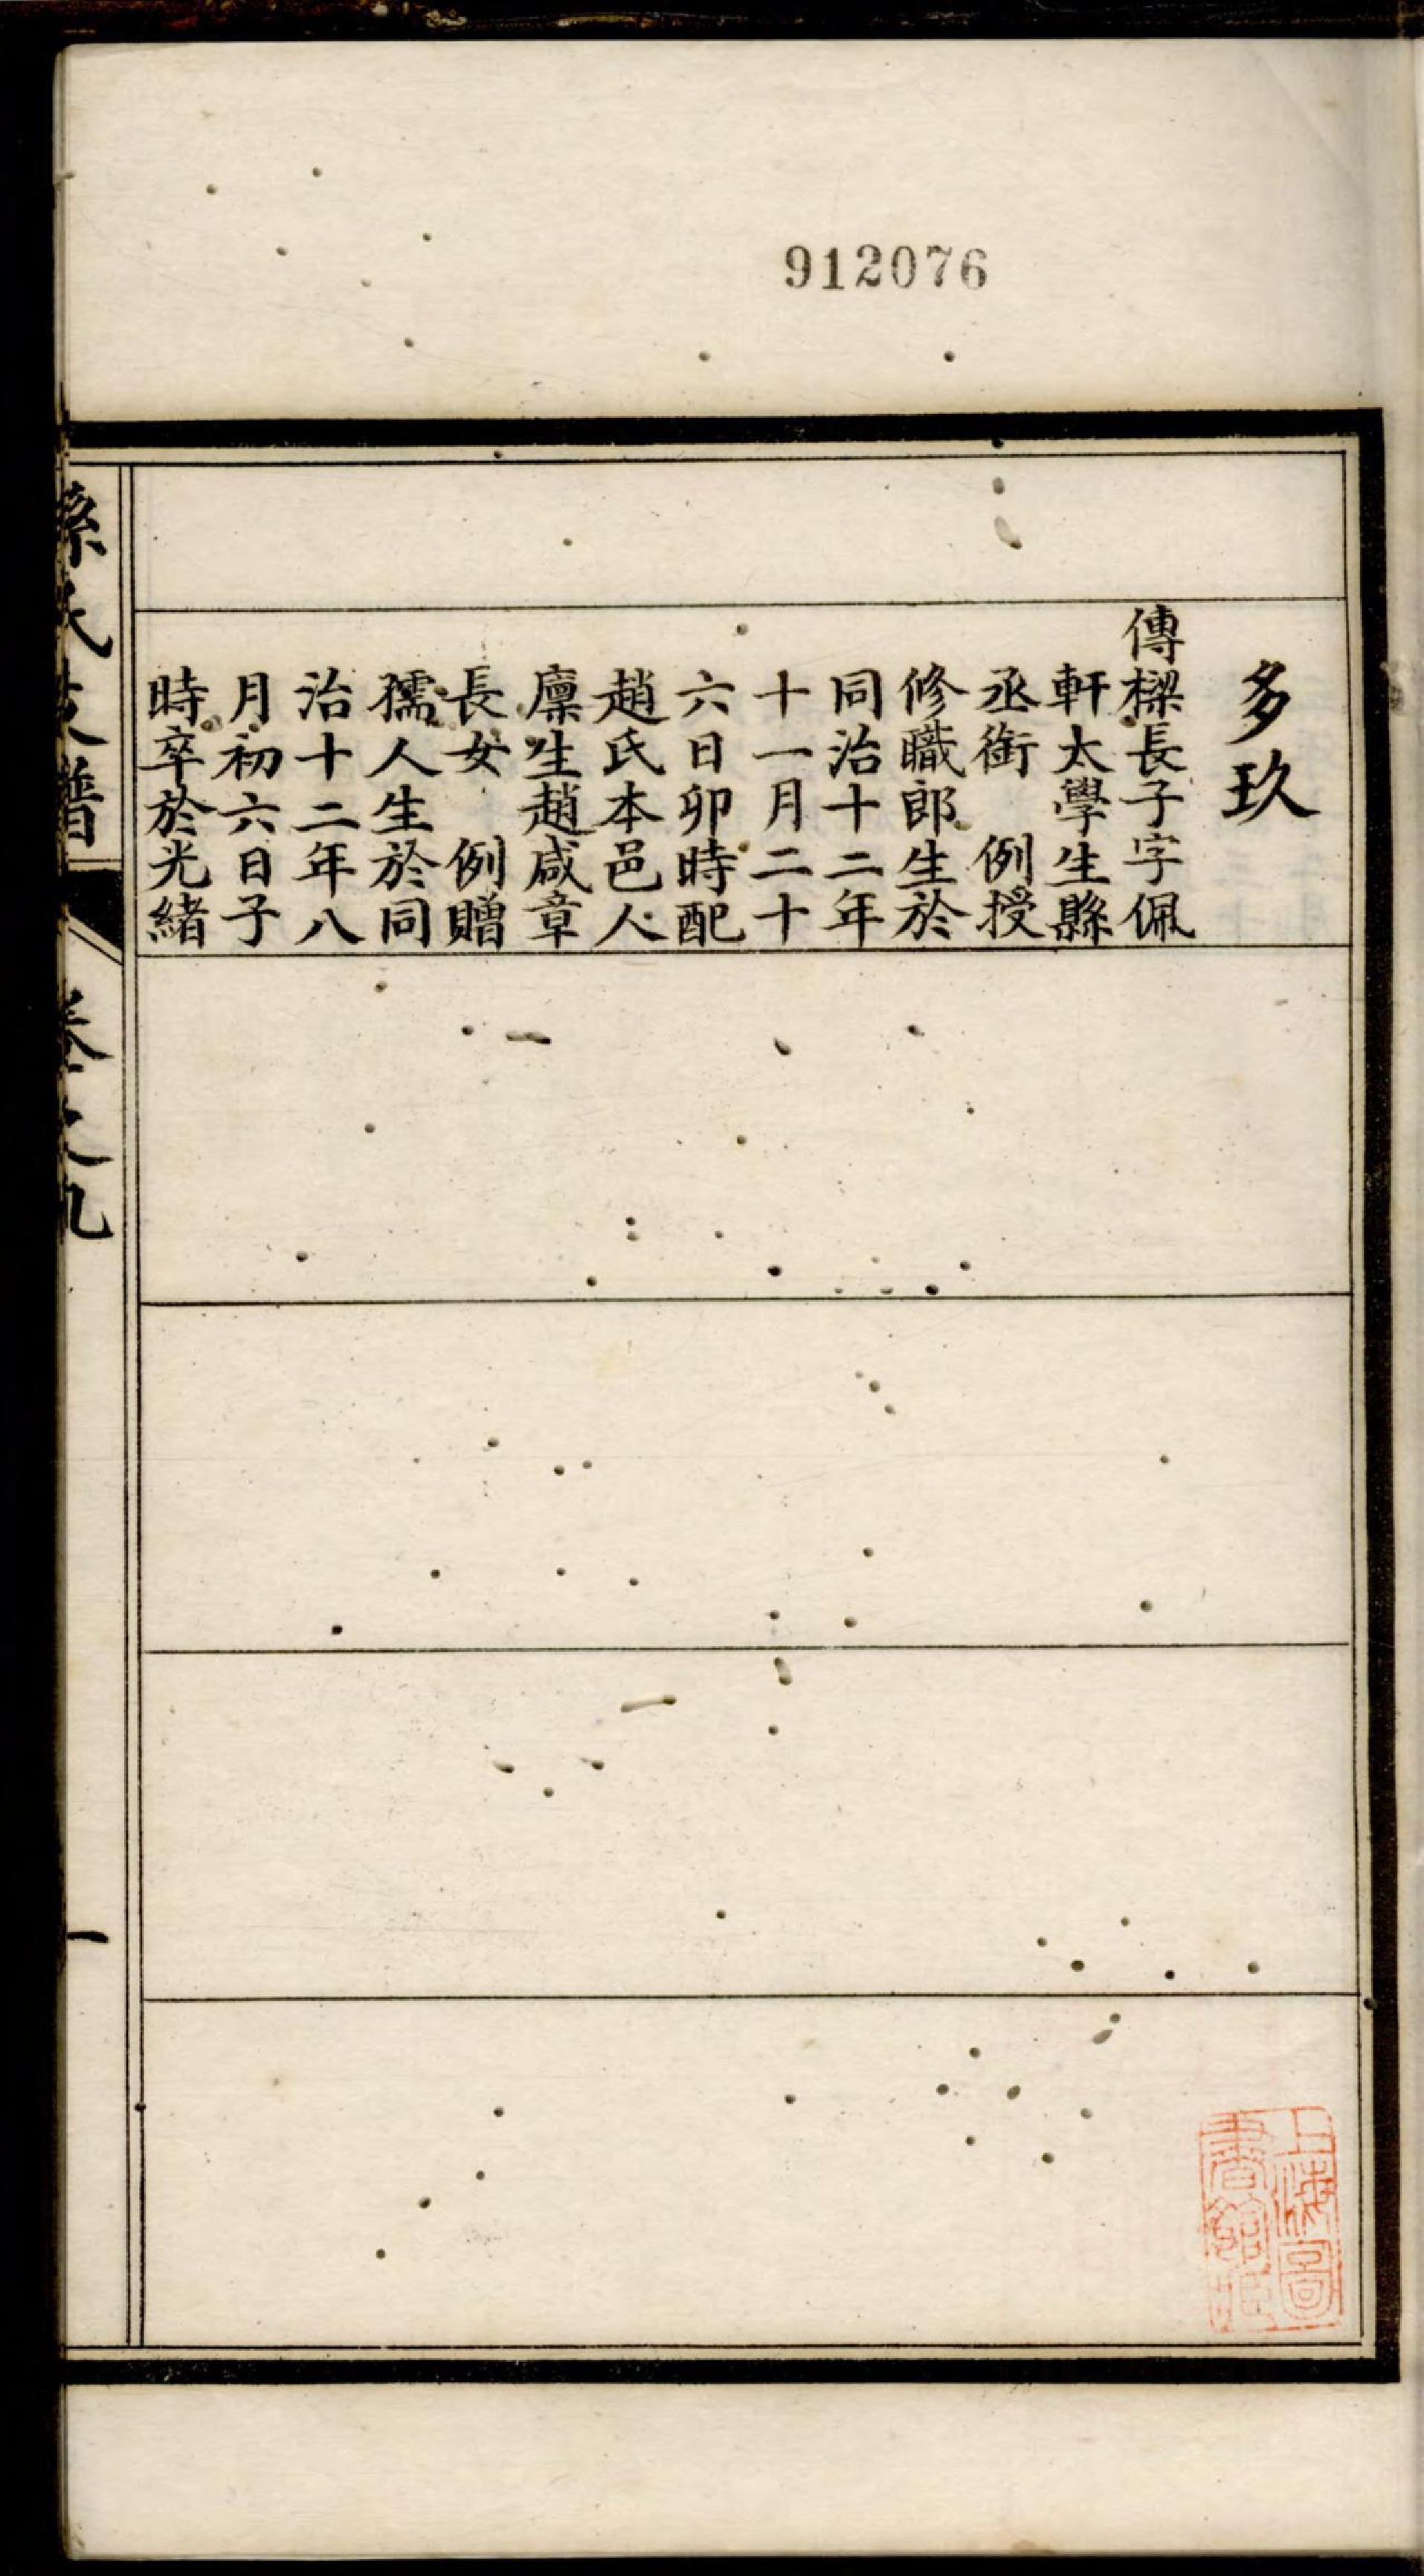 912076
多玖
傳樑長子字佩
軒太學生縣
丞銜　例授
修職郎生於
同治十二年
十一月二十
六日卯時配
趙氏本邑人
廩生趙咸章
長女　例贈
孺人生於同
治十二年八
月初六日子
時卒於光緒
孫氏支譜
卷之九
一
上海圖
書館藏